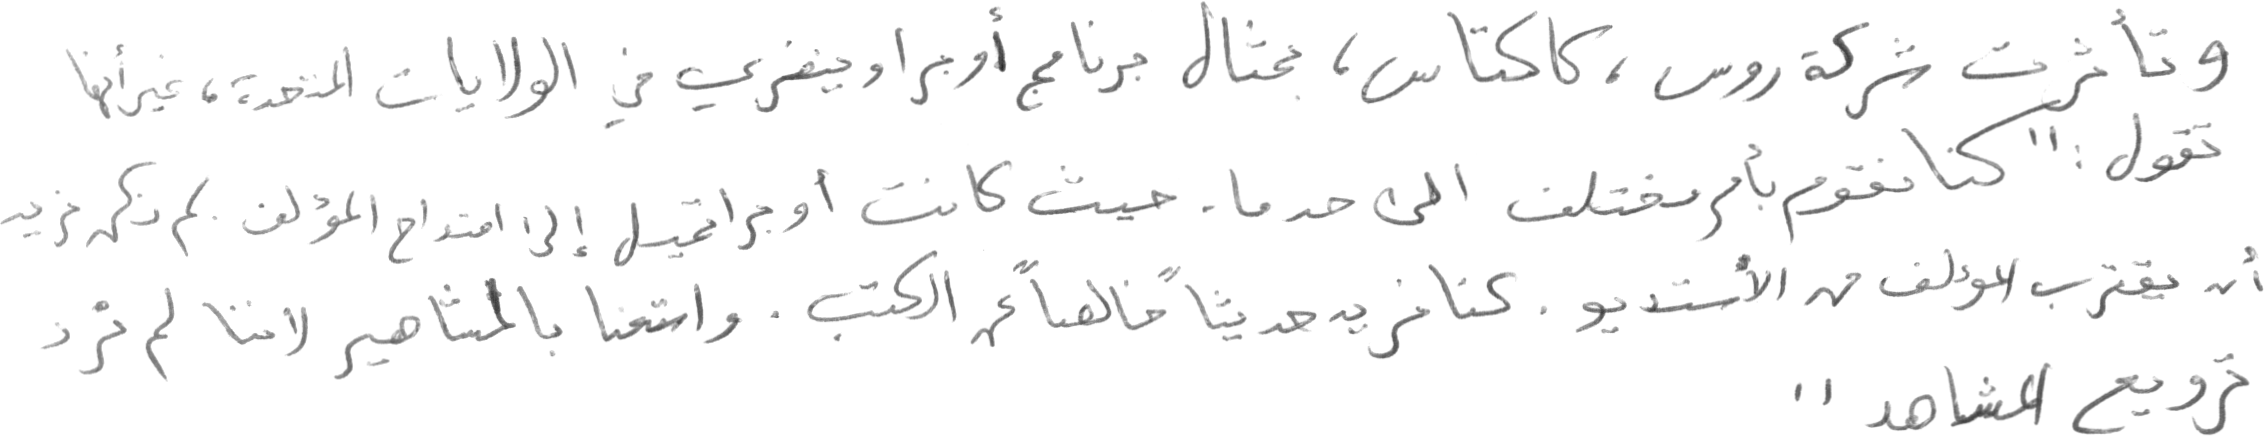 وتأثرت شركة روس ، كاكتاس ، بمثال برنامج أوبرا وينفري في الولايات المتحدة ، غير أنها
تقول : " كنا نقوم بأمر مختلف الى حد ما . حيث كانت أوبرا تميل إلى امتداح المؤلف . لم نكن نريد
أن يقترب المؤلف من الأستديو . كنا نريد حديثاً خالصاً عن الكتب . واستعنا بالمشاهير لاننا لم نُرد
ترويع المشاهد "